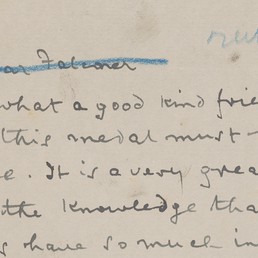 Falconer
what a good kind frie
this medal must-
e. It is a very grea
the knowledge tha
s have so much in